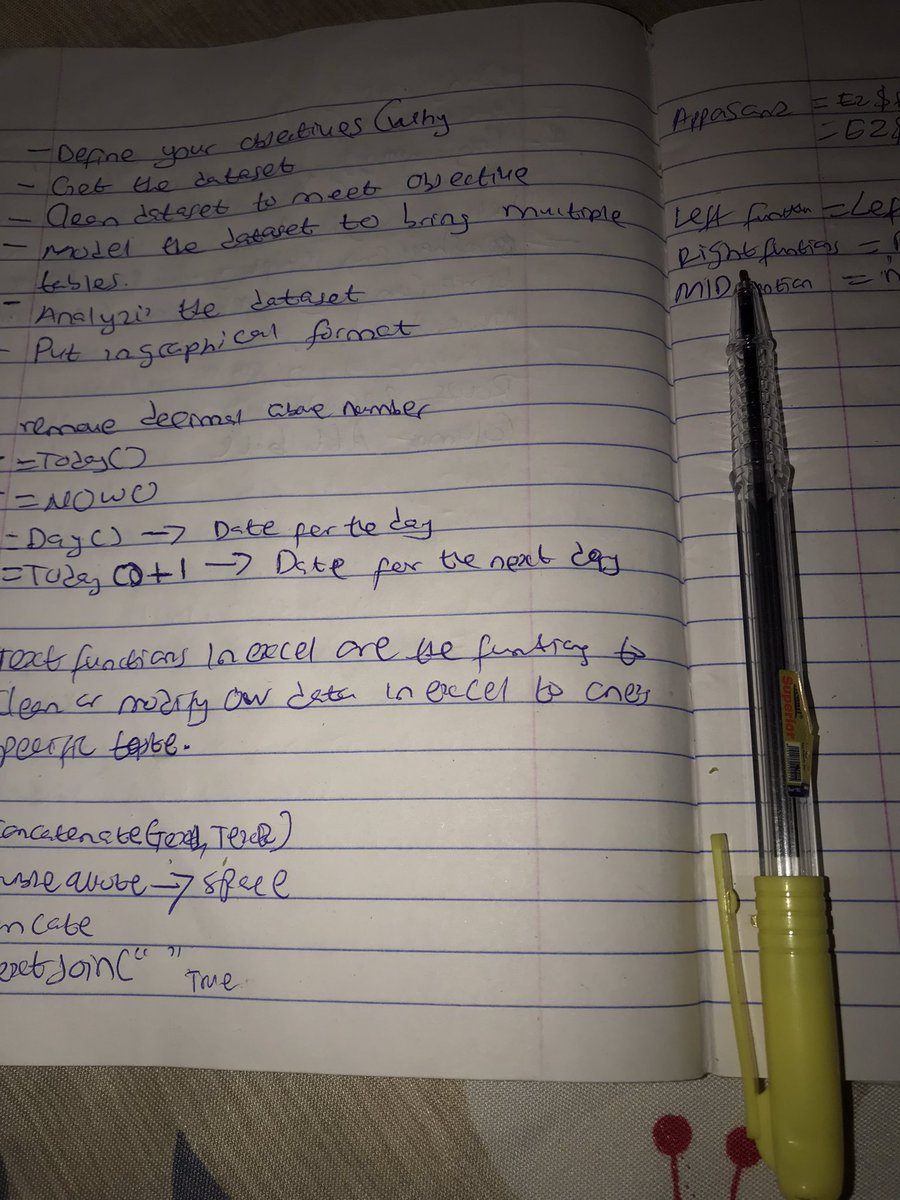 - Define your objectives (why
- Get the dataset
- Clean dataset to meet objective
- Model the dataset to bring multiple
tables.
- Analyzis the dataset
- Put in graphical format
remove decimal above number
- =Today()
- =NOW()
=Day() → Date for the day
=Today()+1 → Date for the next day
Text functions in excel are the functions to
clean or modify our data in excel to ones
specific taste.
oncatenate(Text1, Text2)
→ space
ncate
extJoin(" " True
= E2$
= E2$
Left function = Lef
Right functions =
MID function =
Superior